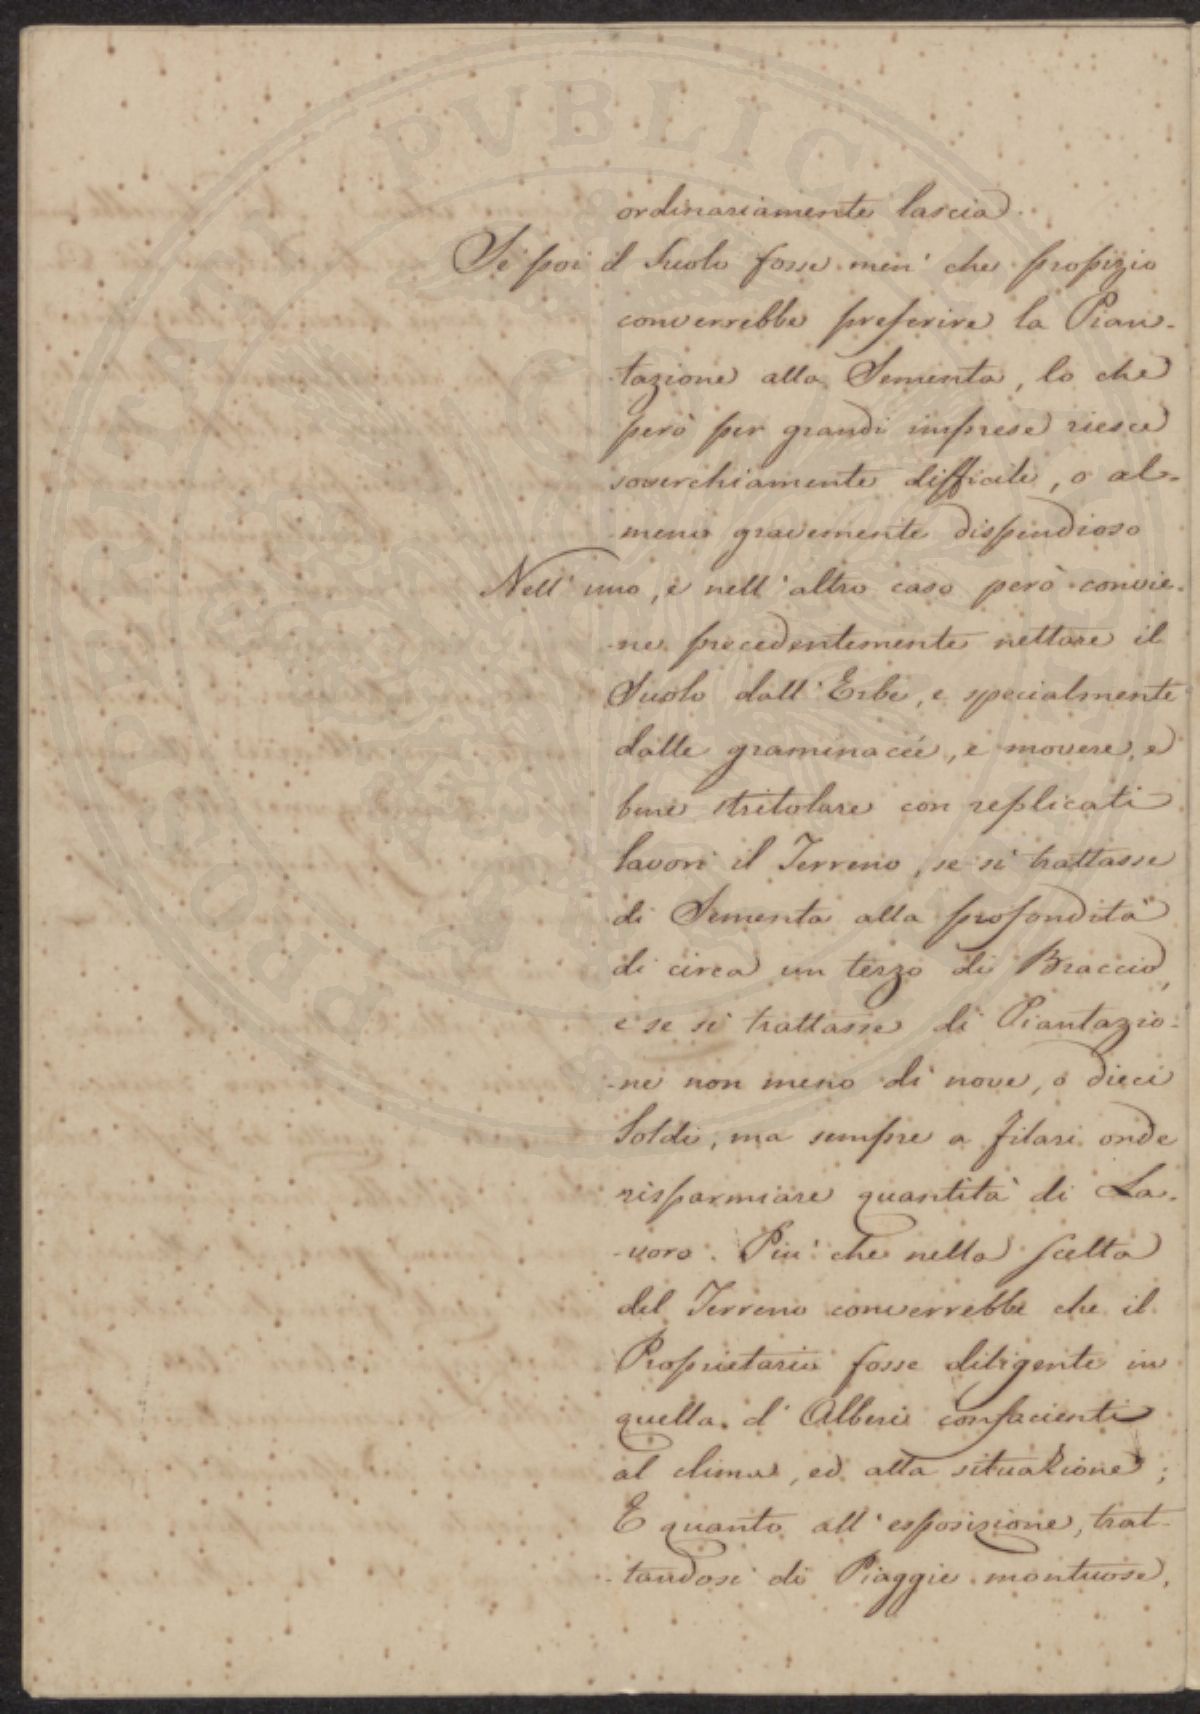 ordinariamente lascia.
Se poi il Suolo fosse men' che propizio
converrebbe preferire la Pian-
-tazione alla Sementa, lo che
però per grandi imprese riesce
soverchiamente difficile, o al-
-meno gravemente dispendioso
Nell' uno, e nell' altro caso però convie-
-ne precedentemente nettare il
Suolo dall' Erbe, e specialmente
dalle graminacée, e movere, e
bene stritolare con replicati
lavori il Terreno, se si trattasse
di Sementa alla profondità
di circa un terzo di Braccio,
e se si trattasse di Piantazio-
-ne non meno di nove, o dieci
Soldi, ma sempre a filari onde
risparmiare quantità di La-
-voro. Più che nella scelta
del Terreno converrebbe che il
Proprietario fosse diligente in
quella d' Alberi confacienti
al clima, ed alla situazione;
E quanto all' esposizione, trat-
-tandosi di Piaggie montuose,